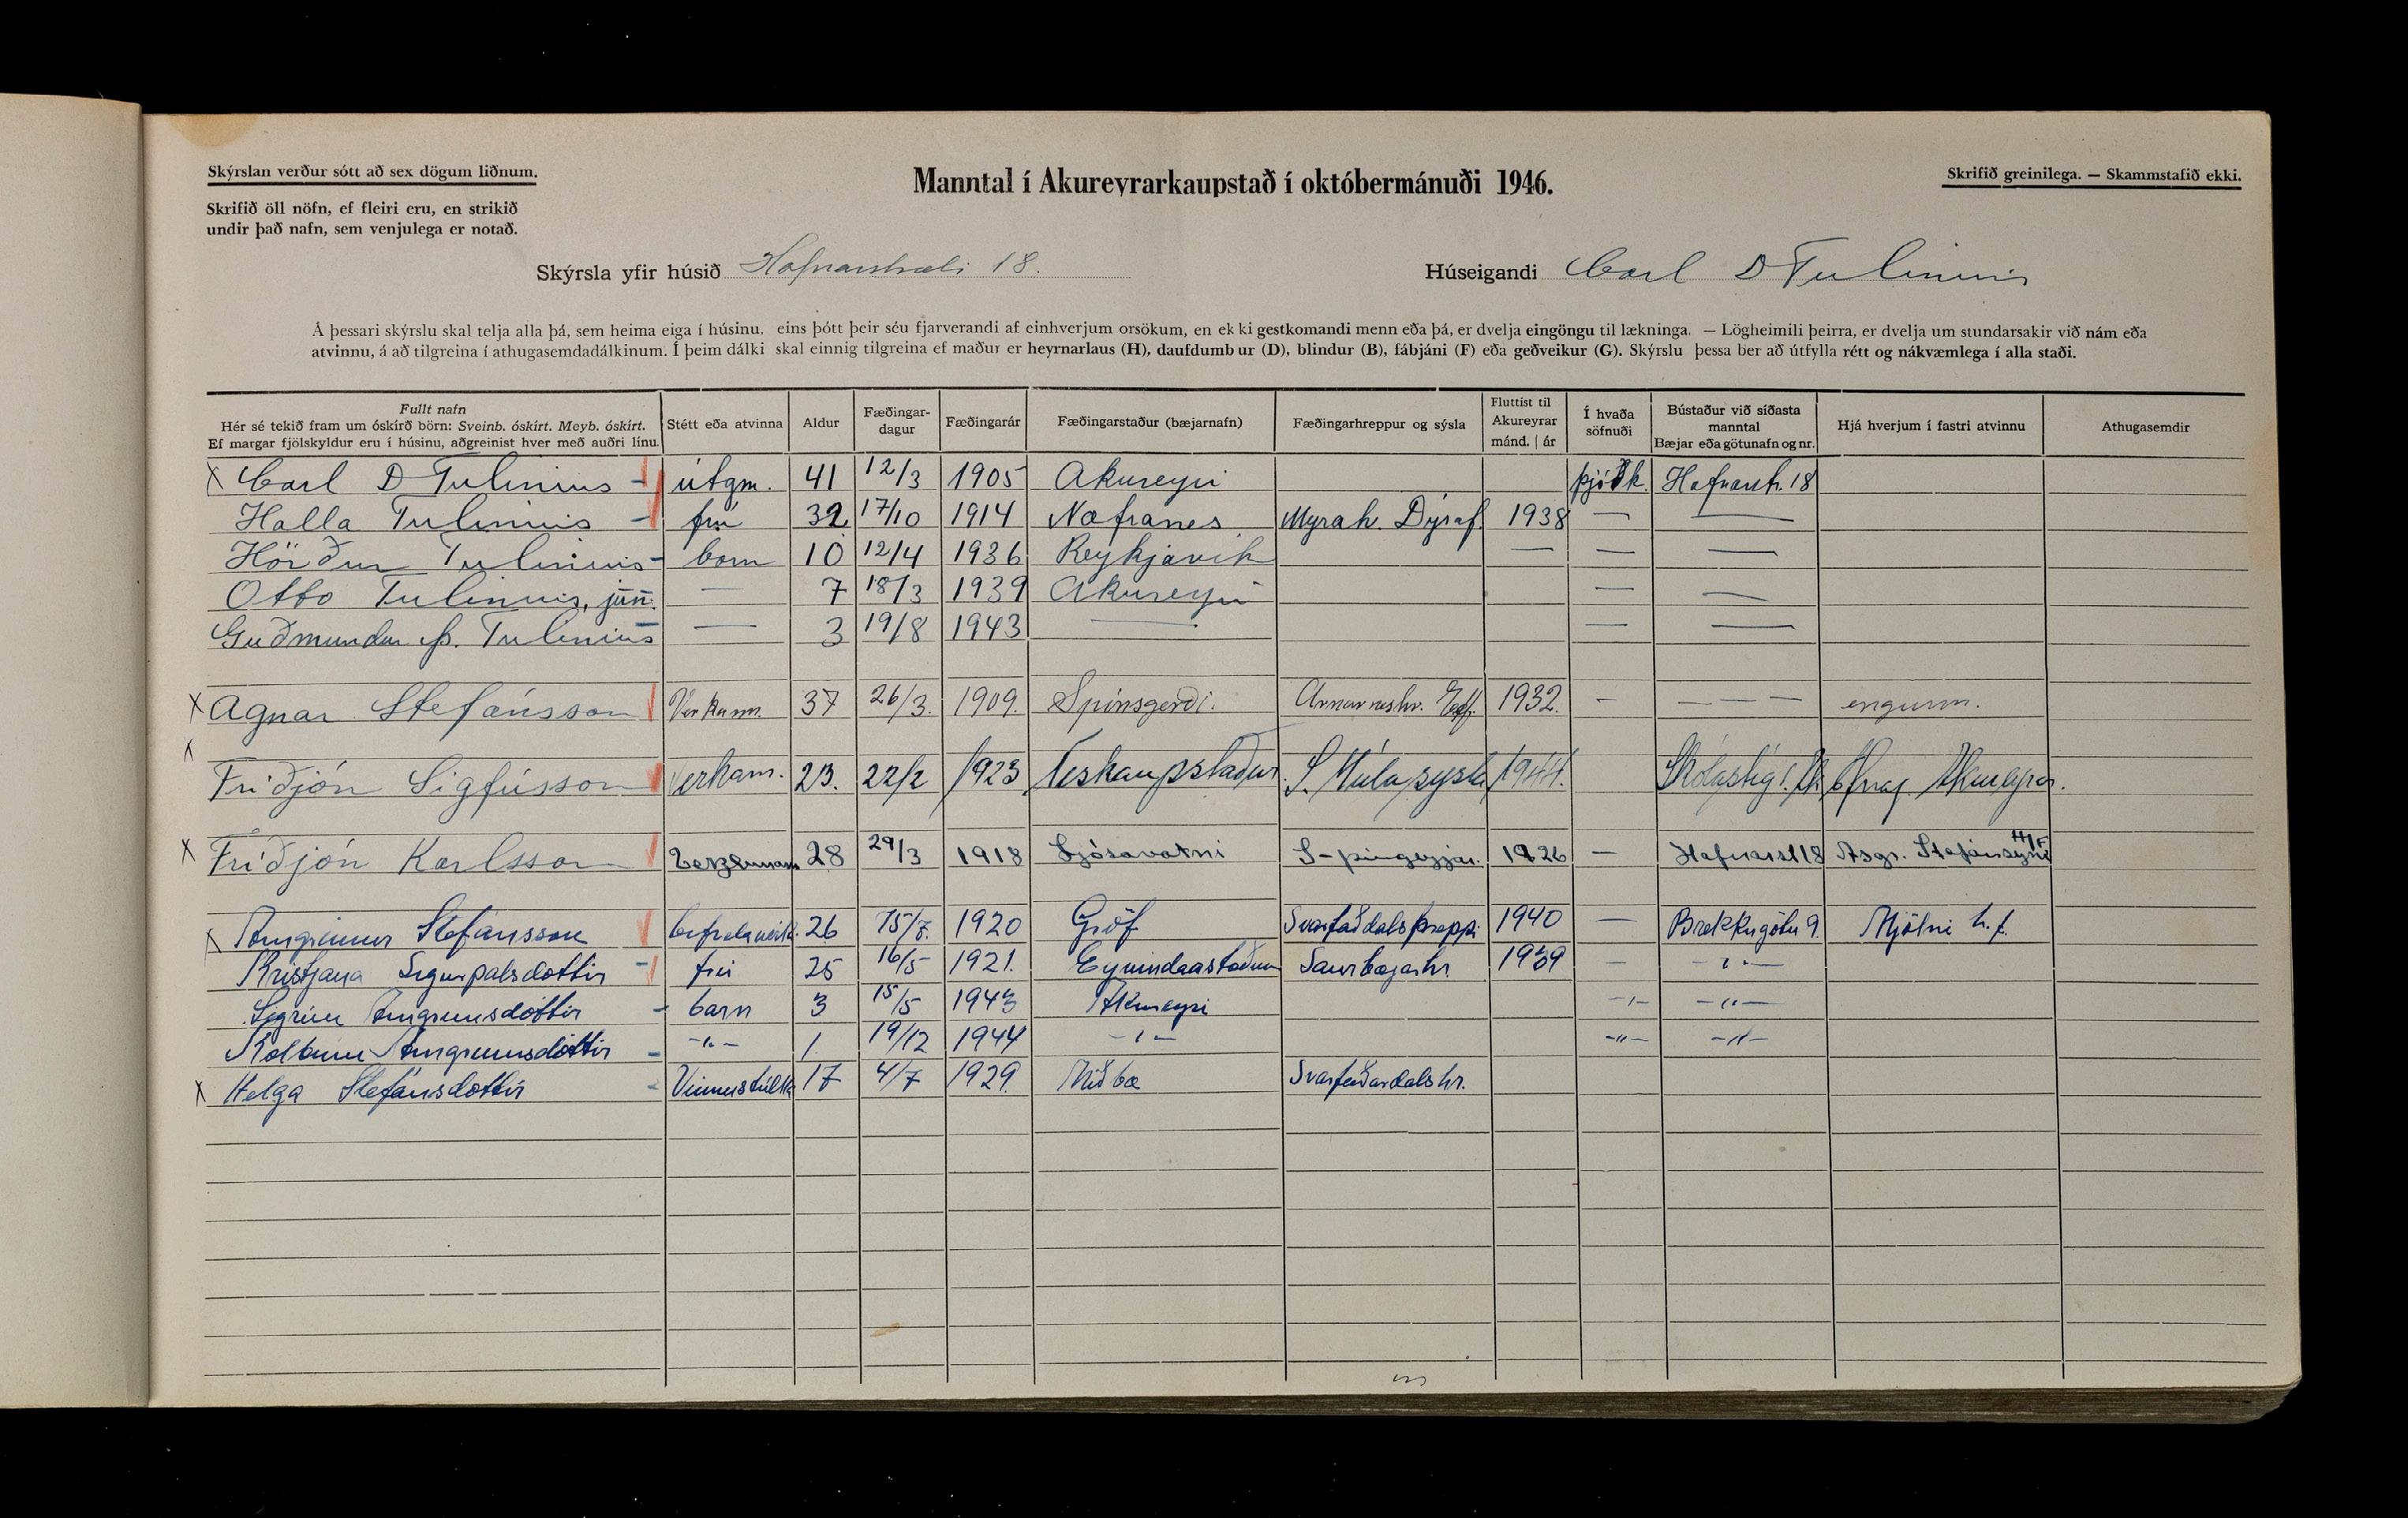 Skýrslan verður sótt að sex dögum liðnum.
Skrifið öll nöfn, ef fleiri eru, en strikið
undir það nafn, sem venjulega er notað.
Manntal í Akureyrarkaupstað í októbermánuði 1946.
Skrifið greinilega. — Skammstafið ekki.
Skýrsla yfir húsið Hafnarstræti 18.
Húseigandi Carl D Tulinius
Á þessari skýrslu skal telja alla þá, sem heima eiga í húsinu, eins þótt þeir séu fjarverandi af einhverjum orsökum, en ekki gestkomandi menn eða þá, er dvelja eingöngu til lækninga. — Lögheimili þeirra, er dvelja um stundarsakir við nám eða
atvinnu, á að tilgreina í athugasemdadálkinum. Í þeim dálki skal einnig tilgreina ef maður er heyrnarlaus (H), daufdumbur (D), blindur (B), fábjáni (F) eða geðveikur (G). Skýrslu þessa ber að útfylla rétt og nákvæmlega í alla staði.
Fullt nafn
Hér sé tekið fram um óskírð börn: Sveinb. óskírt. Meyb. óskírt.
Ef margar fjölskyldur eru í húsinu, aðgreinist hver með auðri línu.
Stétt eða atvinna
Aldur
Fæðingar-
dagur
Fæðingarár
Fæðingarstaður (bæjarnafn)
Fæðingarhreppur og sýsla
Fluttist til
Akureyrar
mánd. | ár
Í hvaða
söfnuði
Bústaður við síðasta
manntal
Bæjar eða götunafn og nr.
Hjá hverjum í fastri atvinnu
Athugasemdir
X Carl D Tulinius - útgm. 41 12/3 1905 Akureyri þjóðk. Hafnarstr. 18
Halla Tulinius - frú 32 17/10 1914 Næfranes Myrah. Dýraf 1938 — —
Hörður Tulinius - barn 10 12/4 1936 Reykjavík — — —
Otto Tulinius, jún. — 7 18/3 1939 Akureyri — —
Guðmundur Þ. Tulinius — 3 19/8 1943 — — —
X Agnar Stefánsson Verkam. 37 26/3. 1909. Spónsgerði. Arnarneshr. Eyjf. 1932. - — — — engum.
X Friðjón Sigfússon Verkam. 23. 22/2 1923 Neskaupstaður. S. Múlasýsla 1944. Akureyrar.
X Friðjón Karlsson Verzlunarm 28 29/3 1918 Ljósavatni S-þingeyjar. 1926 — Hafnarst 18 Ásgr. Stefánsyni H/F
X Arngrímur Stefánsson bifvélavirki. 26 15/7. 1920 Gröf Svarfaðdalshreppi 1940 — Brekkugötu 9. Mjölni h.f.
Kristjana Sigurpálsdóttir - frú 25 16/5 1921. Eyvindarstöðum Saurbæjarhr. 1939 — - " —
Sigrún Arngrímsdóttir - barn 3 15/5 1943 Akureyri - " - - " —
Kolbrún Arngrímsdóttir - - " - 1 19/12 1944 - " - - " - - " -
X Helga Stefánsdóttir - Vinnustúlka 17 4/7 1929. Miðbæ Svarfaðardalshr.